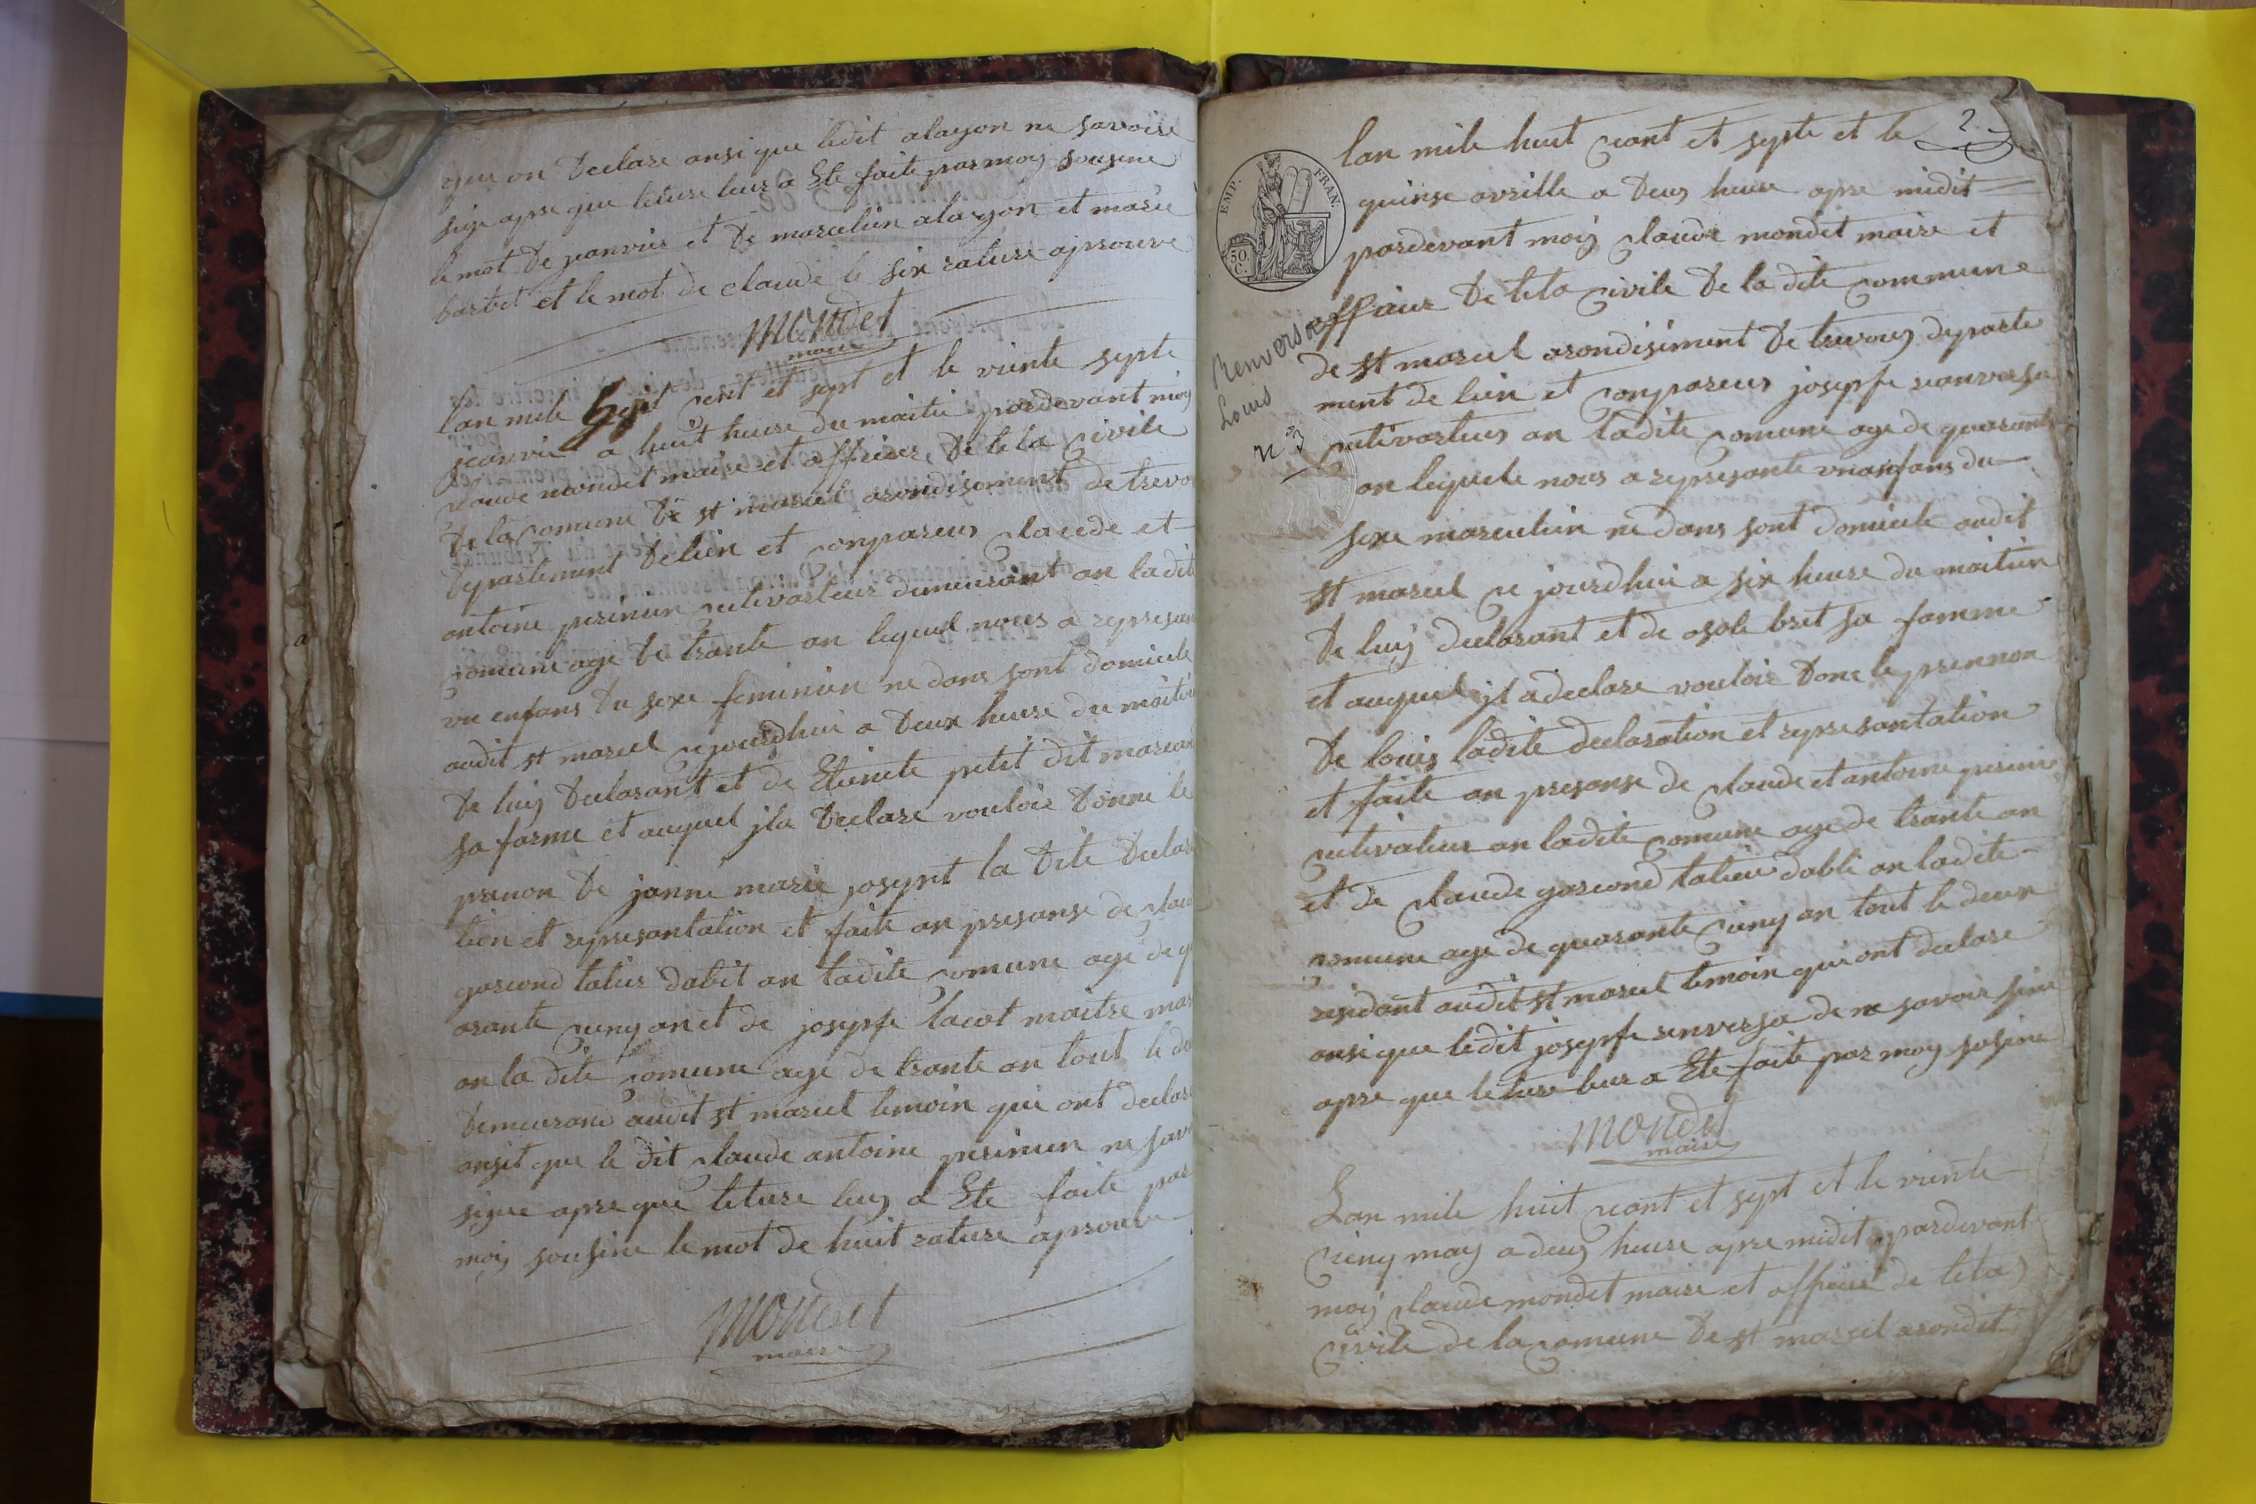 qui on declare ansi que ledit alagon ne savoire
sige apre que leture leur a Ete faite par moy sousine
le mot de janvier et de marcelin alagon et marie
barbet et le mot de claude le six rature aprouve
mondet
maire
lan mile huit cent et sept et le vainte septe
jeanvie a huit heure du maitin pardevant moy
claude mondet maire et officier de leta civile
de la comune de st marcel arondisement de trevo
departement de lein et conpareus claude et
antoine perinin cultivasteur dumeurant an ladite
comune age de trante an lequel nous a represan
un enfans du sexe feminien ne dans sont domicile
audit st marcel ce jourdhui a deux heure du maitin
de luy declarant et de Etienete petit dit marcan
sa farme et auquel jla declare vouloir donne le
prenon de janne marie josept la dite declara
tion et represantation et faite an presanse de clau
gascond talier dabit an ladite comune age de qu
arante cinq an et de josepfe lacot maitre mas
an la dite comune age de trante an tout le deu
demeurand audit st marcel temoin qui ont declare
ansit que le dit claude antoine perinien ne sav
signe apre que leture luy a Ete faite par
moy sousine le mot de huit rature aprouve
mondet
maire
2
EMP. FRAN.
50 C.
lan mile huit cant et septe et le
quinse avrille a deus heure apre midit
pardevant moy claude mondet maire et
officier de leta civile de la dite commune
de st marcel arondisiment de trevous departe
ment de lein et conpareus josepfe ranversa
cultivasteur an ladite comune age de quarante
an lequele nous a represante un anfans du
sexe masculin ne dans sont domicile audit
st marcel ce jourdhui a six heure du maitin
de luy declarant et de bret sa famme
et auquel jl a declare vouloir done le prennon
de louis ladite declaration et represantation
et faite an presanse de claude et antoine perinin
cultivateur an ladite comune age de trante an
et de claude gascond talieur dabli an ladite
comune age de quarante cinq an tout le deux
residant audit st marcel temoin qui ont declare
ansi que ledit josepfe renversa de ne savoir sine
apre que leture leur a Ete faite par moy sosine
mondet
maire
Renversa
Louis
n 3
Lan mile huit cant et sept et le vainte
cinq may a deus heure apre midit pardevant
moy claude mondet maire et officier de leta
civile de la comune de st marcel arondit